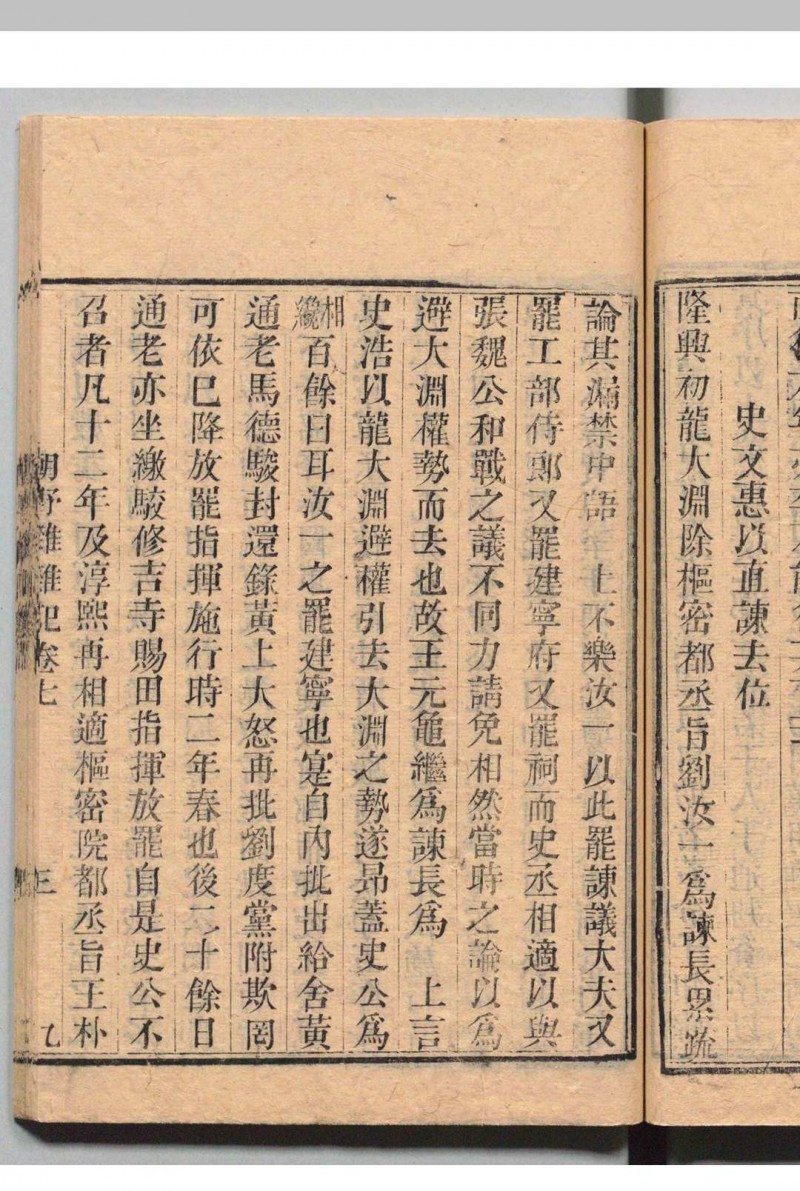 史文惠以直諫去位
隆興初龍大淵除樞密都丞旨劉汝一爲諫長累䟽
論其漏禁中語　上不樂汝一以此罷諫議大夫又
罷工部侍郎又罷建寧府又罷祠而史丞相適以與
張魏公和戰之議不同力請免相然當時之論以爲
避大淵權勢而去也故王元龜繼爲諫長爲　上言
史浩以龍大淵避權引去大淵之勢遂昻蓋史公爲
相纔百餘日耳汝一之罷建寧也寔自內批出給舍黃
通老馬德駿封還錄黃上大怒再批劉度黨附欺罔
可依已降放罷指揮施行時二年春也後二十餘日
通老亦坐繳駮修吉寺賜田指揮放罷自是史公不
召者凡十二年及淳熙再相適樞密院都丞旨王朴
朝野雜記卷七　三　乙